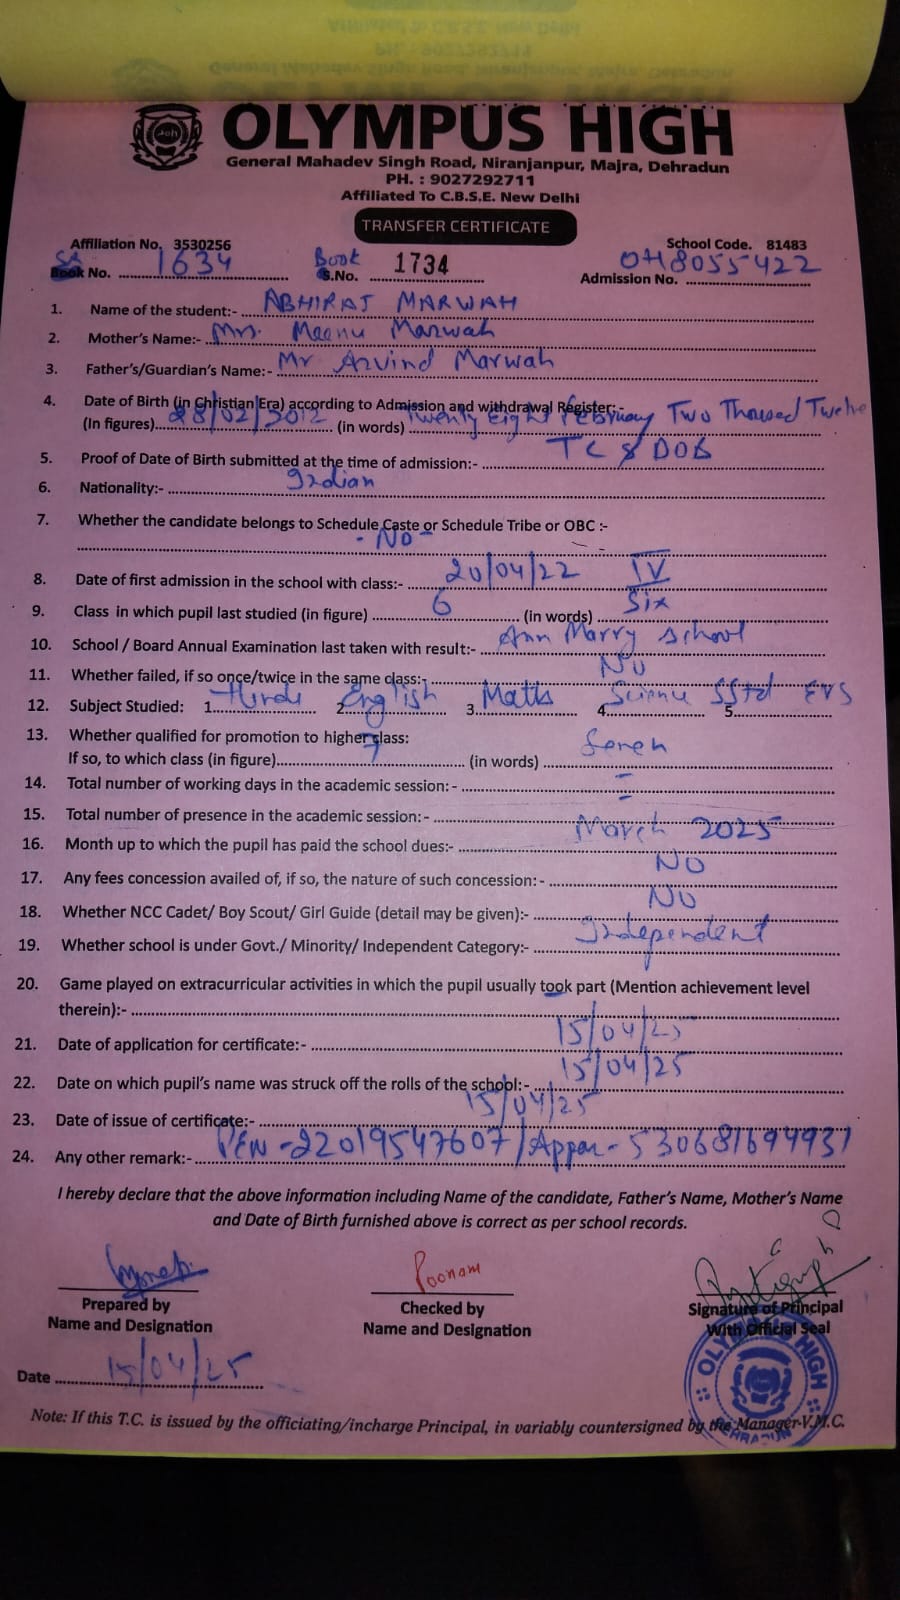 OLYMPUS HIGH
General Mahadev Singh Road, Niranjanpur, Majra, Dehradun
PH. : 9027292711
Affiliated To C.B.S.E. New Delhi
TRANSFER CERTIFICATE
Affiliation No. 3530256 School Code. 81483
Sr Book No. 1634 Book S.No. 1734 Admission No. OH8055422
1. Name of the student:- ABHIRAJ MARWAH
2. Mother's Name:- Mrs. Meenu Marwah
3. Father's/Guardian's Name:- Mr Arvind Marwah
4. Date of Birth (in Christian Era) according to Admission and withdrawal Register:-
(In figures) 28/02/2012 (in words) Twenty Eight February Two Thoused Twelve
5. Proof of Date of Birth submitted at the time of admission:- TC & DOB
6. Nationality:- Indian
7. Whether the candidate belongs to Schedule Caste or Schedule Tribe or OBC :-
- No -
8. Date of first admission in the school with class:- 20/04/22 IV
9. Class in which pupil last studied (in figure) 6 (in words) Six
10. School / Board Annual Examination last taken with result:- Ann Marry School
11. Whether failed, if so once/twice in the same class:- No
12. Subject Studied: 1. Hindi 2. English 3. Maths 4. Science 5. SStd EVS
13. Whether qualified for promotion to higher class:
If so, to which class (in figure) 7 (in words) Seven
14. Total number of working days in the academic session:- -
15. Total number of presence in the academic session:- -
16. Month up to which the pupil has paid the school dues:- March 2025
17. Any fees concession availed of, if so, the nature of such concession:- NO
18. Whether NCC Cadet/ Boy Scout/ Girl Guide (detail may be given):- NO
19. Whether school is under Govt./ Minority/ Independent Category:- Independent
20. Game played on extracurricular activities in which the pupil usually took part (Mention achievement level
therein):-
21. Date of application for certificate:- 15/04/25
22. Date on which pupil's name was struck off the rolls of the school:- 15/04/25
23. Date of issue of certificate:- 15/04/25
24. Any other remark:- PEN - 22019547607 / Appar - 530681694931
I hereby declare that the above information including Name of the candidate, Father's Name, Mother's Name
and Date of Birth furnished above is correct as per school records.
Poonam
Prepared by Checked by Signature of Principal
Name and Designation Name and Designation With Official Seal
OLYMPUS HIGH
DEHRADUN
Date 15/04/25
Note: If this T.C. is issued by the officiating/incharge Principal, in variably countersigned by the Manager V.M.C.